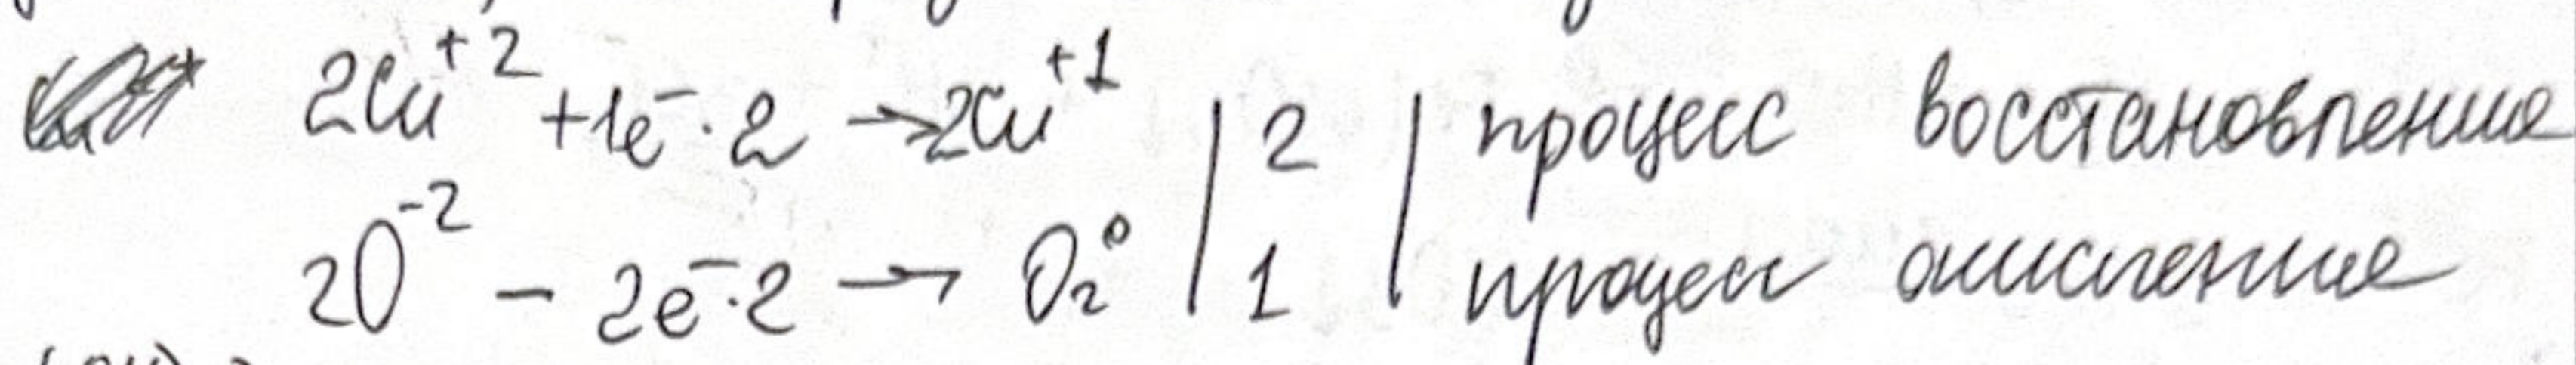 2Cu⁺² + 1e⁻·2 → 2Cu⁺¹ | 2 | процесс восстановление
2O⁻² – 2e⁻·2 → O₂⁰ | 1 | процесс окисление